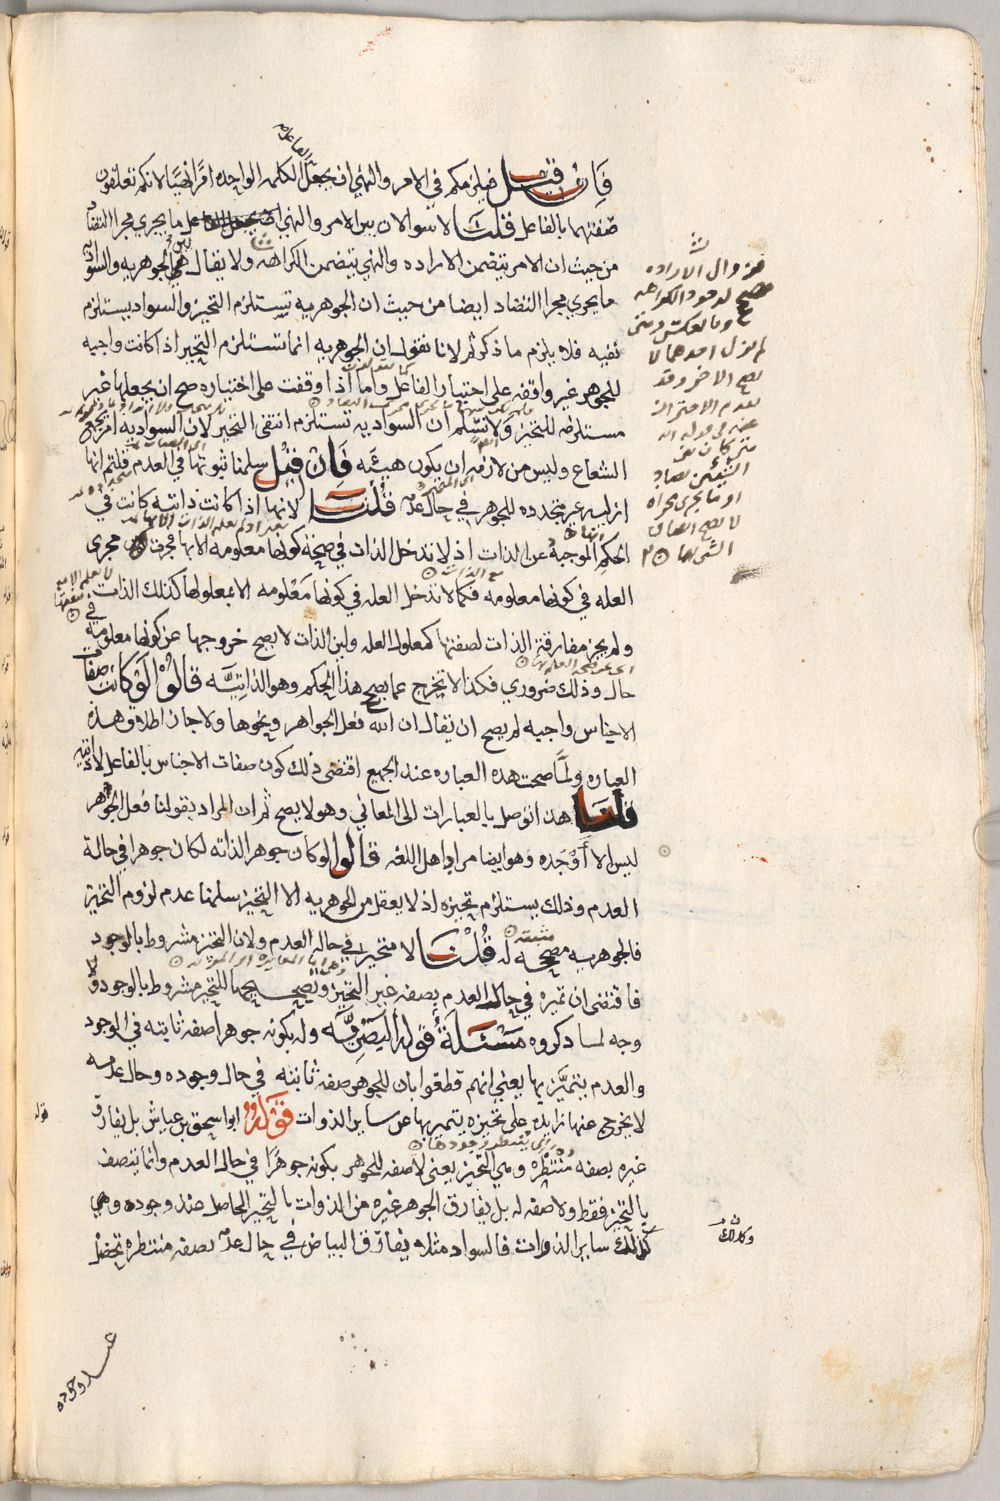 فان قيل فيلزمكم في الامر والنهي ان يجعل الكلمه الواحده امرا نهيا لانكم تعلقون
صفتهما بالفاعل قلنا لا سوا لان بين الامر والنهي ما يجري مجرا التضاد
من حيث ان الامر يتضمن الاراده والنهي يتضمن الكراهه ولا يقال بين الجوهريه والسواديه
ما يجري مجرا التضاد ايضا من حيث ان الجوهريه تستلزم التحيز والسواد يستلزم
نفيه فلا يلزم ما ذكرتم لانا نقول ان الجوهريه انما تستلزم التحيز اذا كانت واجبه
للجوهر غير واقفه على اختيار الفاعل واما اذا وقفت على اختياره صح ان يجعلها غير
مستلزمه للتحيز ولا نسلم ان السواديه تستلزم انتفى التحيز لان السواديه امر يجمع
الشعاع وليس من لازمه ان يكون هيئه فان قيل سلمنا ثبوتها في العدم فلم انها
ازليه غير متجدده للجوهر في حال عدمه قلنا لانها اذا كانت ذاتيه كانت في
الحكم الموجبه عن الذات اذ لا تدخل الذات في صحة كونها معلومه الا بها فجرت مجرى
العله في كونها معلومه فكما لا تدخل العله في كونها معلومه الا بمعلولها كذلك الذات
ولم يجز مفارقة الذات لصفتها كمعلول العله ولان الذات لا يصح خروجها عن كونها معلومه في
حال وذلك ضروري فكذا لا تخرج عما يصح هذا الحكم وهو الذاتيه قالوا لو كانت صفات
الاجناس واجبه لم يصح ان يقال ان الله فعل الجواهر ونحوها ولا جاز اطلاق هذه
العباره ولما صحت هذه العباره عند الجميع اقتضى ذلك كون صفات الاجناس بالفاعل لا ذاتيه
قلنا هذا توصل بالعبارات الى المعاني وهو لا يصح ثم ان المراد بقولنا فعل الجوهر
ليس الا اوجده وهو ايضا مراد اهل اللغه قالوا لو كان جوهرا لذاته لكان جوهرا في حالة
العدم وذلك يستلزم تحيزه اذ لا يعقل من الجوهريه الا التحيز سلمنا عدم لزوم التحيز
فالجوهريه مصححه له قلنا لا متحيز في حاله العدم ولان التحيز مشروط بالوجود
فاقتضى ان تميزه في حال العدم بصفه غير التحيز وتصحيحها للتحيز مشروط بالوجود ولا
وجه لما ذكروه مسئلة قوله البصريه وله بكونه جوهرا صفه ثابته في الوجود
والعدم يتميز بها يعني انهم قطعوا بان للجوهر صفه ثابته في حال وجوده وحال عدمه
لا يخرج عنها زايده على تحيزه يتميز بها عن ساير الذوات قوله ابو اسحق بن عياش بل يفارق
غيره بصفه منتظره وهي التحيز يعني لا صفه للجوهر بكونه جوهرا في حال العدم وانما يتصف
بالتحيز فقط ولا صفه له بل يفارق الجوهر غيره من الذوات بالتحيز الحاصل عند وجوده وهي
كذلك ساير الذوات فالسواد مثلا يفارق البياض في حال عدمه بصفه منتظره تحصل
عند وجوده
فزوال الاراده
مصحح لوجود الكراهه
وبالعكس ومتى
لم يزل احدهما لا
يصح الاخر وقد
تقدم الاحتراز
عنه في قوله انه
متى كان بين
الشيئين تضاد
او ما يجري مجراه
وكذلك
قوله